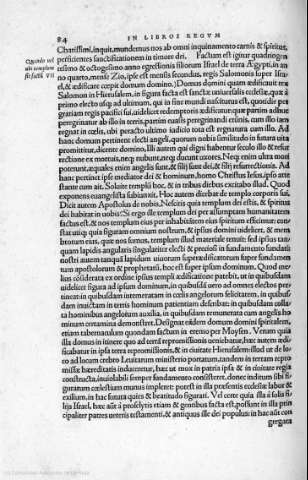 84
IN LIBROS REGUM
Charissimi, inquit, mundemus nos ab omni inquinamento carnis & spiritus,
perficientes sanctificationem in timore dei. Factum est igitur quadringen
tesimo & octogesimo anno egressionis filiorum Israel de terra Ægypti, in an
no quarto, mense Zio, ipse est mensis secundus, regis Salomonis super Isra-
el, & ædificare cœpit domum domino.) Domus domini quam ædificauit rex
Salomon in Hierusalem, in figura facta est sanctæ uniuersalis ecclesiæ, quæ à
primo electo usque ad ultimum, qui in fine mundi nasciturus est, quotidie per
gratiam regis pacifici sui, uidelicet redemptoris ædificatur: quæ partim adhuc
peregrinatur ab illo in terris, partim euasis peregrinandi ærumnis, cum illo iam
regnat in cœlis, ubi peracto ultimo iudicio tota est regnatura cum illo. Ad
hanc domum pertinent electi angeli, quorum nobis similitudo in futura uita
promittitur, dicente domino, Illi autem qui digni habentur seculo illo & resur
rectione ex mortuis, neque nubunt, neque ducunt uxores. Neque enim ultra mori
poterunt, æquales enim angelis sunt, & filij sunt dei, & filij resurrectionis. Ad
hanc pertinet ipse mediator dei & hominum, homo Christus Iesus, ipso atte
stante cum ait, Soluite templum hoc, & in tribus diebus excitabo illud. Quod
exponens euangelista subiunxit, Hoc autem dicebat de templo corporis sui.
Dicit autem Apostolus de nobis, Nescitis quia templum dei estis, & spiritus
dei habitat in uobis? Si ergo ille templum dei per assumptam humanitatem
factus est, & nos templum eius per inhabitantem eius spiritum efficimur: con
stat utique quia figuram omnium nostrum, & ipsius domini uidelicet, & mem
brorum eius, quæ nos sumus, templum illud materiale tenuit: sed ipsius tan-
quam lapidis angularis singulariter electi & preciosi in fundamento fundati:
nostri autem tanquam lapidum uiuorum superædificatorum super fundamen
tum apostolorum & prophetarum, hoc est super ipsum dominum. Quod me-
lius considerata ex ordine ipsius templi ædificatione patebit, ut in quibusdam
uidelicet figura ad ipsum dominum, in quibusdam uero ad omnes electos per-
tineat: in quibusdam internorum in cœlis angelorum felicitatem, in quibus-
dam inuictam in terris hominum patientiam describat: in quibusdam colla-
ta hominibus angelorum auxilia, in quibusdam remunerata cum angelis ho-
minum certamina demonstret. Designat eadem domum domini spiritalem,
etiam tabernaculum quondam factum in eremo per Moysen. Verum quia
illa domus in itinere quo ad terram repromissionis ueniebatur, hæc autem ædi-
ficabatur in ipsa terra repromissionis, & in ciuitate Hierusalem: illa ut de lo-
co ad locum crebro Leuitarum ministerio portaretur, tandem in terram repro
missæ hæreditatis induceretur, hæc ut mox in patria ipsa & in ciuitate regia
constructa, inuiolabili semper fundamento consisteret, donec inditum sibi fi-
gurarum cœlestium munus impleret: potest in illa præsentis ecclesiæ labor &
exilium, in hac futura quies & beatitudo figurari. Vel certe quia illa à solis fi-
lijs Israel, hæc aût à proselytis etiam & gentibus facta est, possunt in illa prin
cipaliter patres ueteris testamenti, & antiquus ille dei populus: in hac aût con
gregata